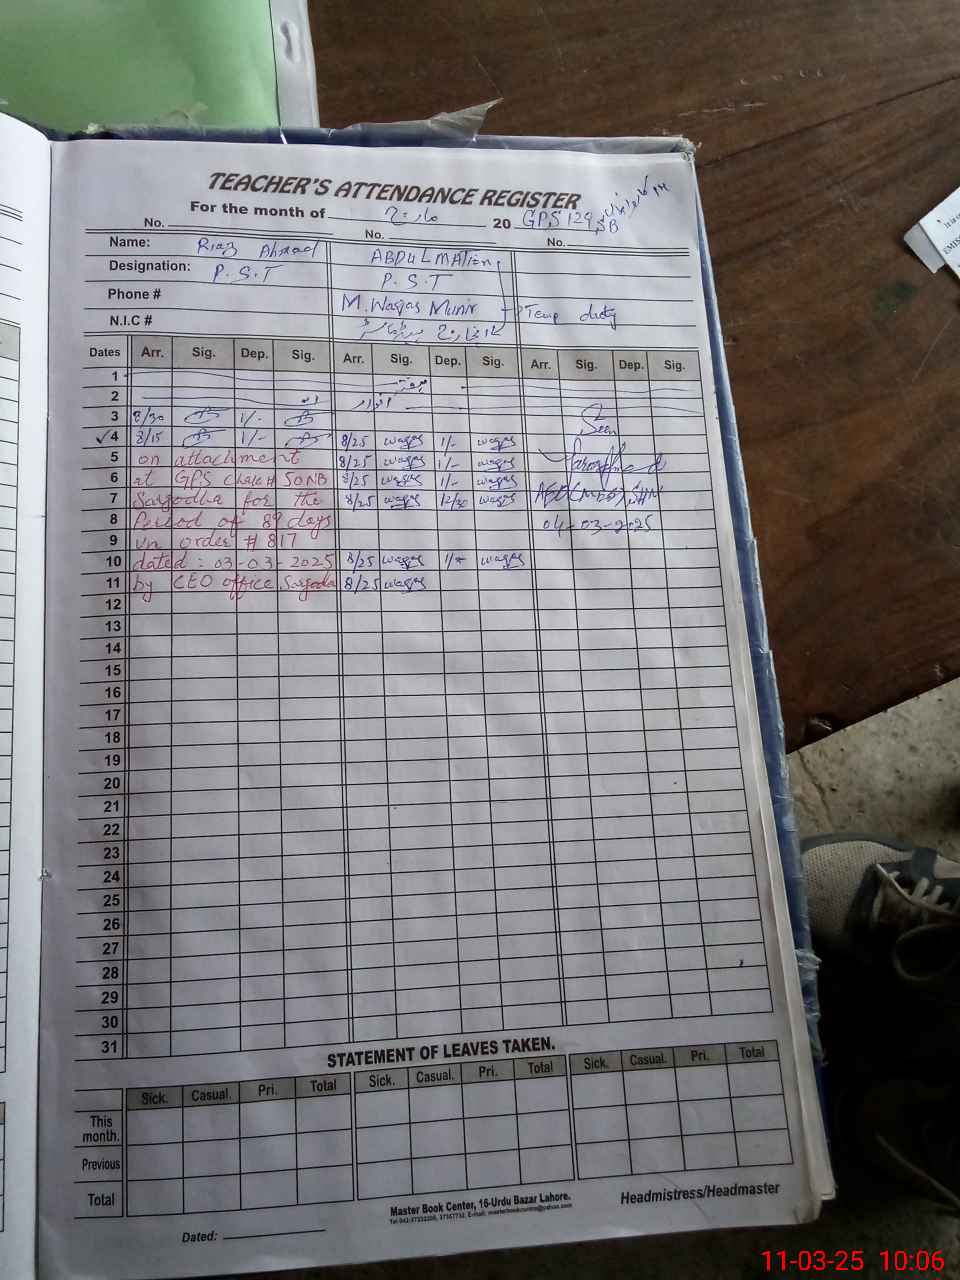 TEACHER'S ATTENDANCE REGISTER
For the month of مارچ 20 GPS 129 SB
No. No. No.
Name: Riaz Ahmad ABDUL MATIEN
Designation: P.S.T P.S.T
Phone # M. Waqas Munir Temp duty
N.I.C #
Dates Arr. Sig. Dep. Sig. Arr. Sig. Dep. Sig. Arr. Sig. Dep. Sig.
1
2 اتوار
3 8/30 1/- Seen
4 8/15 1/- 8/25 waqas 1/- waqas
5 on attachment 8/25 waqas 1/- waqas
6 at GPS Chak# 50NB 8/25 waqas 1/- waqas
7 Sargodha for the 8/25 waqas 12/30 waqas
8 Period of 89 days 04-03-2025
9 vn order # 817
10 dated: 03-03-2025 8/25 waqas waqas
11 by CEO office Sargoda 8/25 waqas
12
13
14
15
16
17
18
19
20
21
22
23
24
25
26
27
28
29
30
31
STATEMENT OF LEAVES TAKEN.
Sick. Casual. Pri. Total Sick. Casual. Pri. Total Sick. Casual. Pri. Total
This month.
Previous
Total
Master Book Center, 16-Urdu Bazar Lahore.
Headmistress/Headmaster
Dated:
11-03-25 10:06